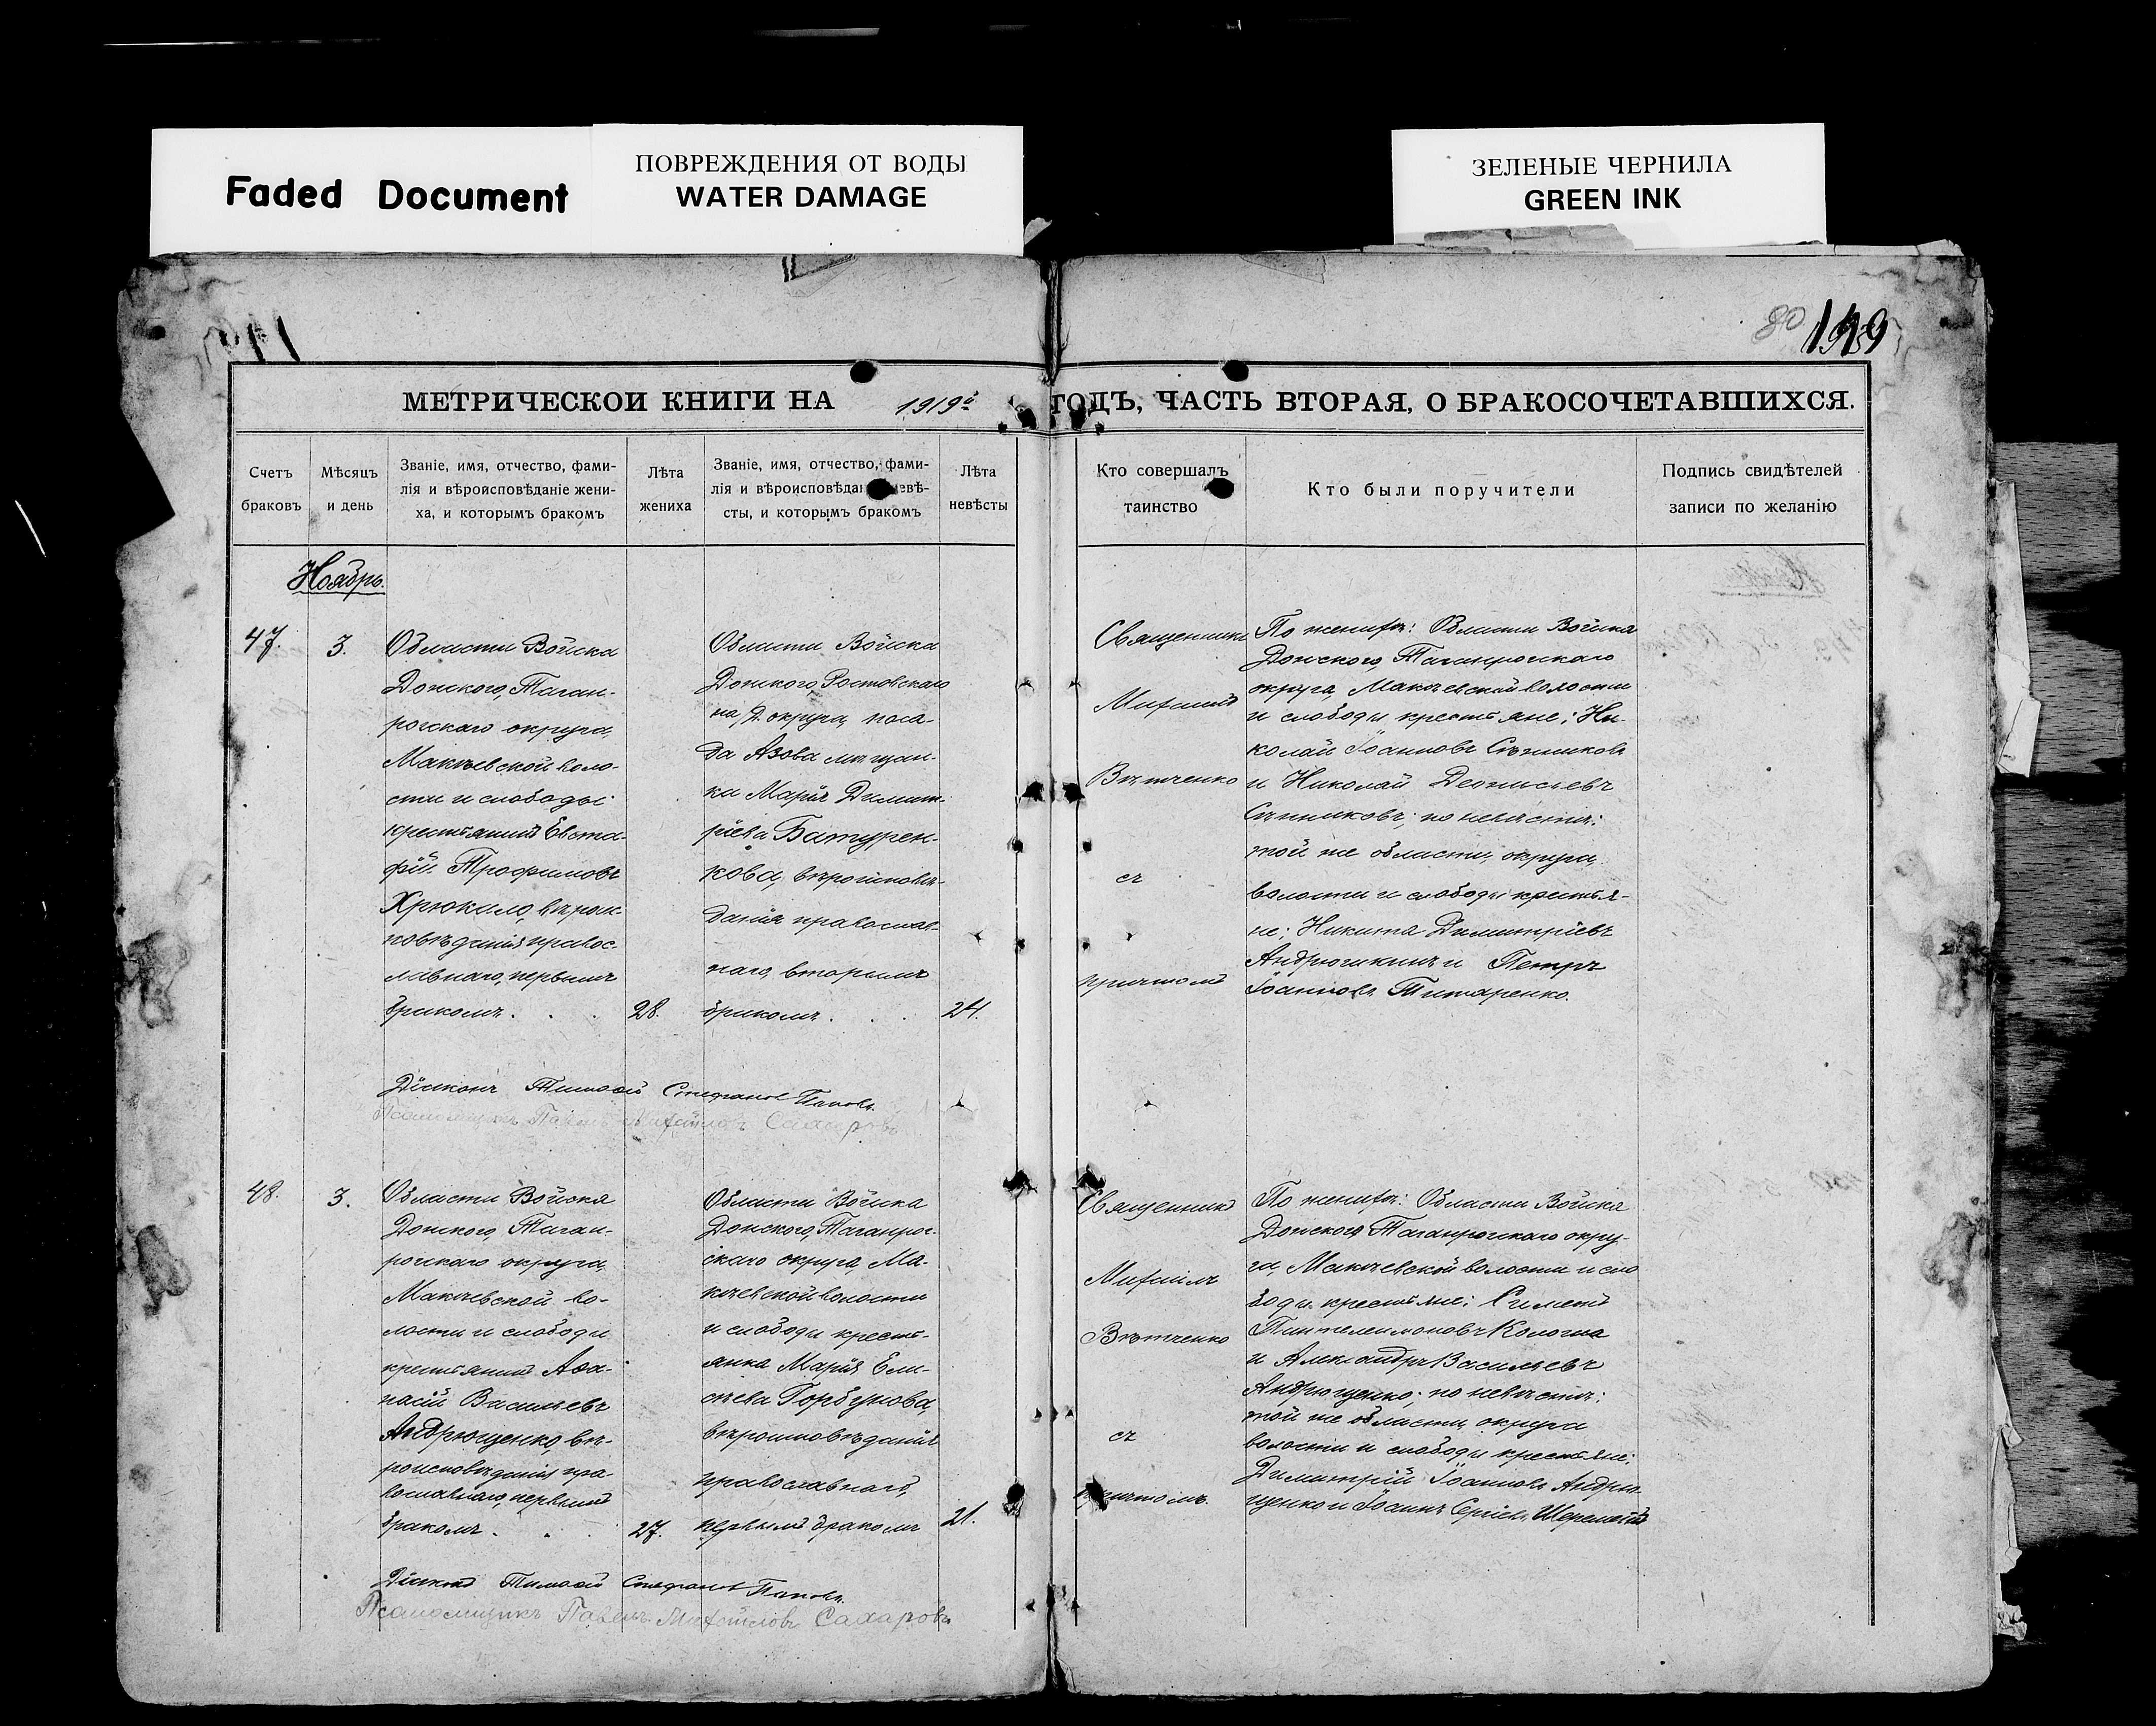 Faded Document
ПОВРЕЖДЕНИЯ ОТ ВОДЫ
WATER DAMAGE
ЗЕЛЕНЫЕ ЧЕРНИЛА
GREEN INK
80
МЕТРИЧЕСКОИ КНИГИ НА 1919й ГОДЪ, ЧАСТЬ ВТОРАЯ, О БРАКОСОЧЕТАВШИХСЯ.
Счетъ
браковъ
Мѣсяцъ
и день
Званіе, имя, отчество, фами-
лія и вѣроисповѣданіе жени-
ха, и которымъ бракомъ
Лѣта
жениха
Званіе, имя, отчество, фами-
лія и невѣ-
сты, и которымъ бракомъ
Лѣта
невѣсты
Кто совершалъ
таинство
Кто были поручители
Подпись свидѣтелей
записи по желанію
Ноябрь.
47.
3.
Области Войска
Донского, Таган-
рогскаго округа,
Макѣевской воло-
сти и слободы
крестьянинъ Евста-
фій Трофимовъ
Хрюкало, вѣроис-
повѣданія правос-
лавнаго, первымъ
бракомъ . . .
28.
Области Войска
Донского, Ростовскаго
на Д. округа, поса-
да Азова мѣщан-
ка Марія Димит-
ріева Батурен-
кова, вѣроисповѣ-
данія православ-
наго, вторымъ
бракомъ . . .
24.
Священникъ
Михаилъ
Вѣтченко
съ
причтомъ
По женихѣ: Области Войска
Донского, Таганрогскаго
округа, Макѣевской волости
и слободы крестьяне: Ни-
колай Іоанновъ Сѣнниковъ
и Николай Деонисьевъ
Сѣнниковъ; по невѣстѣ:
той же области, округа,
волости и слободы крестья-
не: Никита Димитріевъ
Андрюшкинъ и Петръ
Іоанновъ Титаренко.
Діаконъ Тимоѳей Стефановъ Поповъ.
Псаломщикъ Павелъ Михайловъ Сахаровъ
48.
3.
Области Войска
Донского, Таган-
рогскаго округа,
Макѣевской во-
лости и слободы
крестьянинъ Аѳа-
насій Васильевъ
Андрющенко, вѣ-
роисповѣданія пра-
вославнаго, первымъ
бракомъ . . .
27.
Области Войска
Донского, Таганрог-
скаго округа, Ма-
кѣевской волости
и слободы кресть-
янка Марія Ели-
сѣева Горбунова,
вѣроисповѣданія
православнаго,
первымъ бракомъ
21.
Священникъ
Михаилъ
Вѣтченко
съ
причтомъ.
По женихѣ: Области Войска
Донского, Таганрогскаго окру-
га, Макѣевской волости и сло
боды крестьяне: Симеонъ
Пантелеимоновъ Кологма
и Александръ Васильевъ
Андрющенко; по невѣстѣ:
той же области, округа
волости и слободы крестьяне:
Димитрій Іоанновъ Андрю-
щенко и Іоаннъ Сергіевъ
Діаконъ Тимоѳей Стефановъ Поповъ.
Псаломщикъ Павелъ Михайловъ Сахаровъ